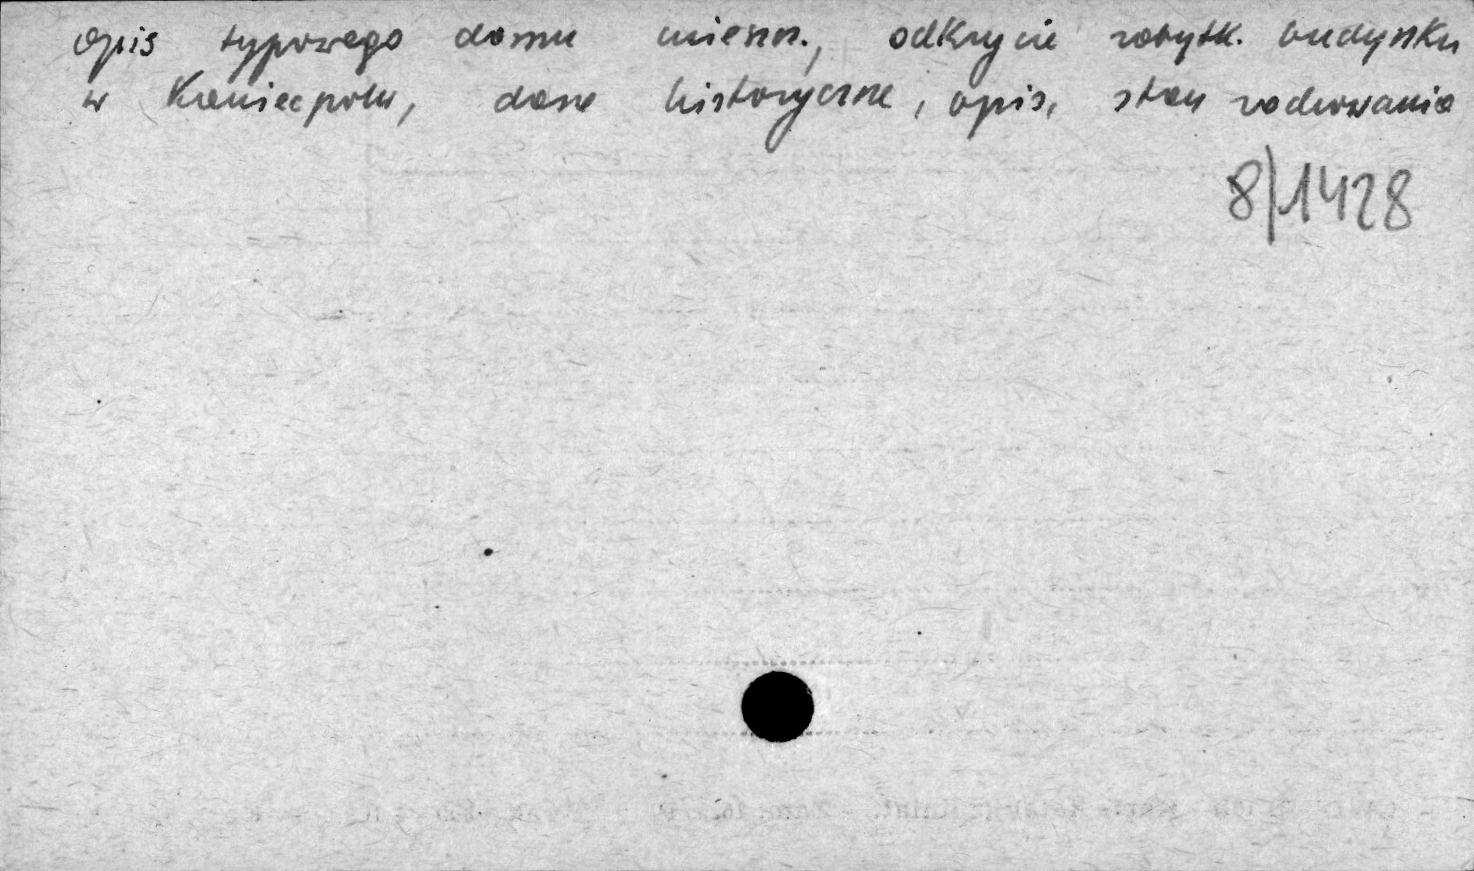 opis typowego domu mieszcz., odkrycie zabytk. budynku
w Koniecpolu, dane historyczne, opis, stan zachowania
8/1428